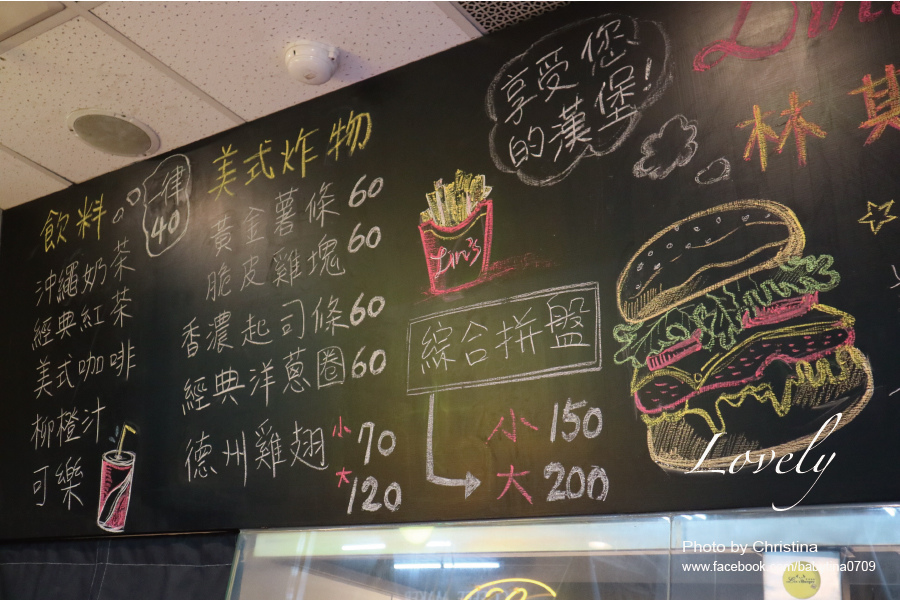 飲料
一律
40
沖繩奶茶
經典紅茶
美式咖啡
柳橙汁
可樂
美式炸物
黃金薯條 60
脆皮雞塊 60
香濃起司條 60
經典洋蔥圈 60
德州雞翅 小 70
大 120
Lin's
綜合拼盤
小 150
大 200
享受您
的漢堡!
林其
Lovely
Photo by Christina